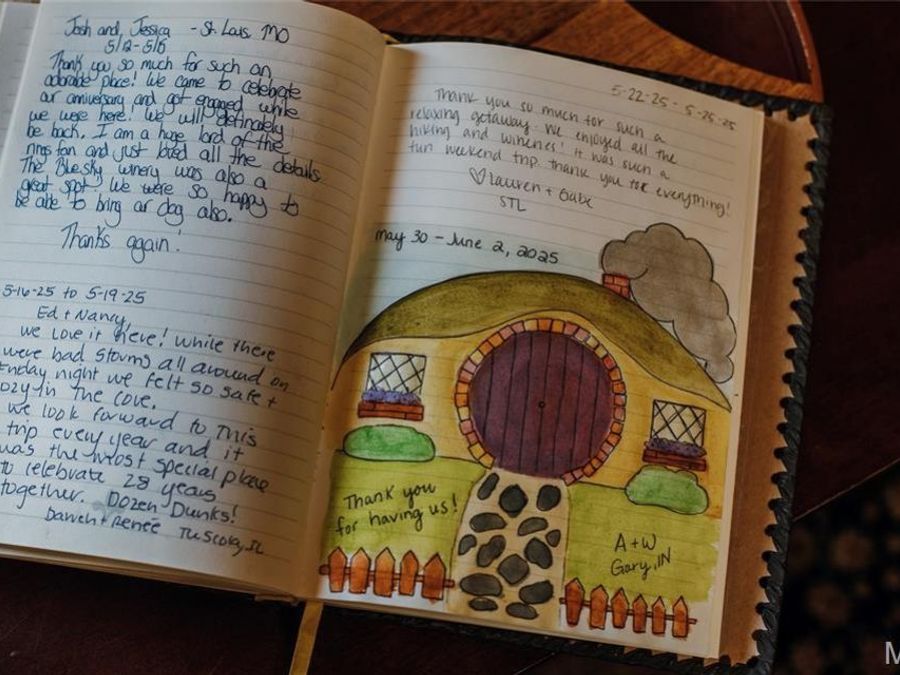 Josh and Jessica - St. Louis, MO
5/12-5/16
Thank you so much for such an
adorable place! We came to celebrate
our anniversary and got engaged while
we were here! We will definately
be back. I am a huge lord of the
rings fan and just loved all the details.
The Bluesky winery was also a
great spot. We were so happy to
be able to bring our dog also.
Thanks again!
5-16-25 to 5-19-25
Ed + Nancy,
we love it here! while there
were bad storms all around on
night we felt so safe +
cozy in the cove.
we look forward to this
trip every year and it
was the most special place
to celebrate 28 years
together. Dozen Dunks!
Darren + Renée Tuscola, IL
5-22-25 - 5-25-25
Thank you so much for such a
relaxing getaway. We enjoyed all the
hiking and wineries! It was such a
fun weekend trip. thank you for everything!
♡ Lauren + Gabe
STL
may 30 - June 2, 2025
Thank you
for having us!
A + W
Gary, IN
M